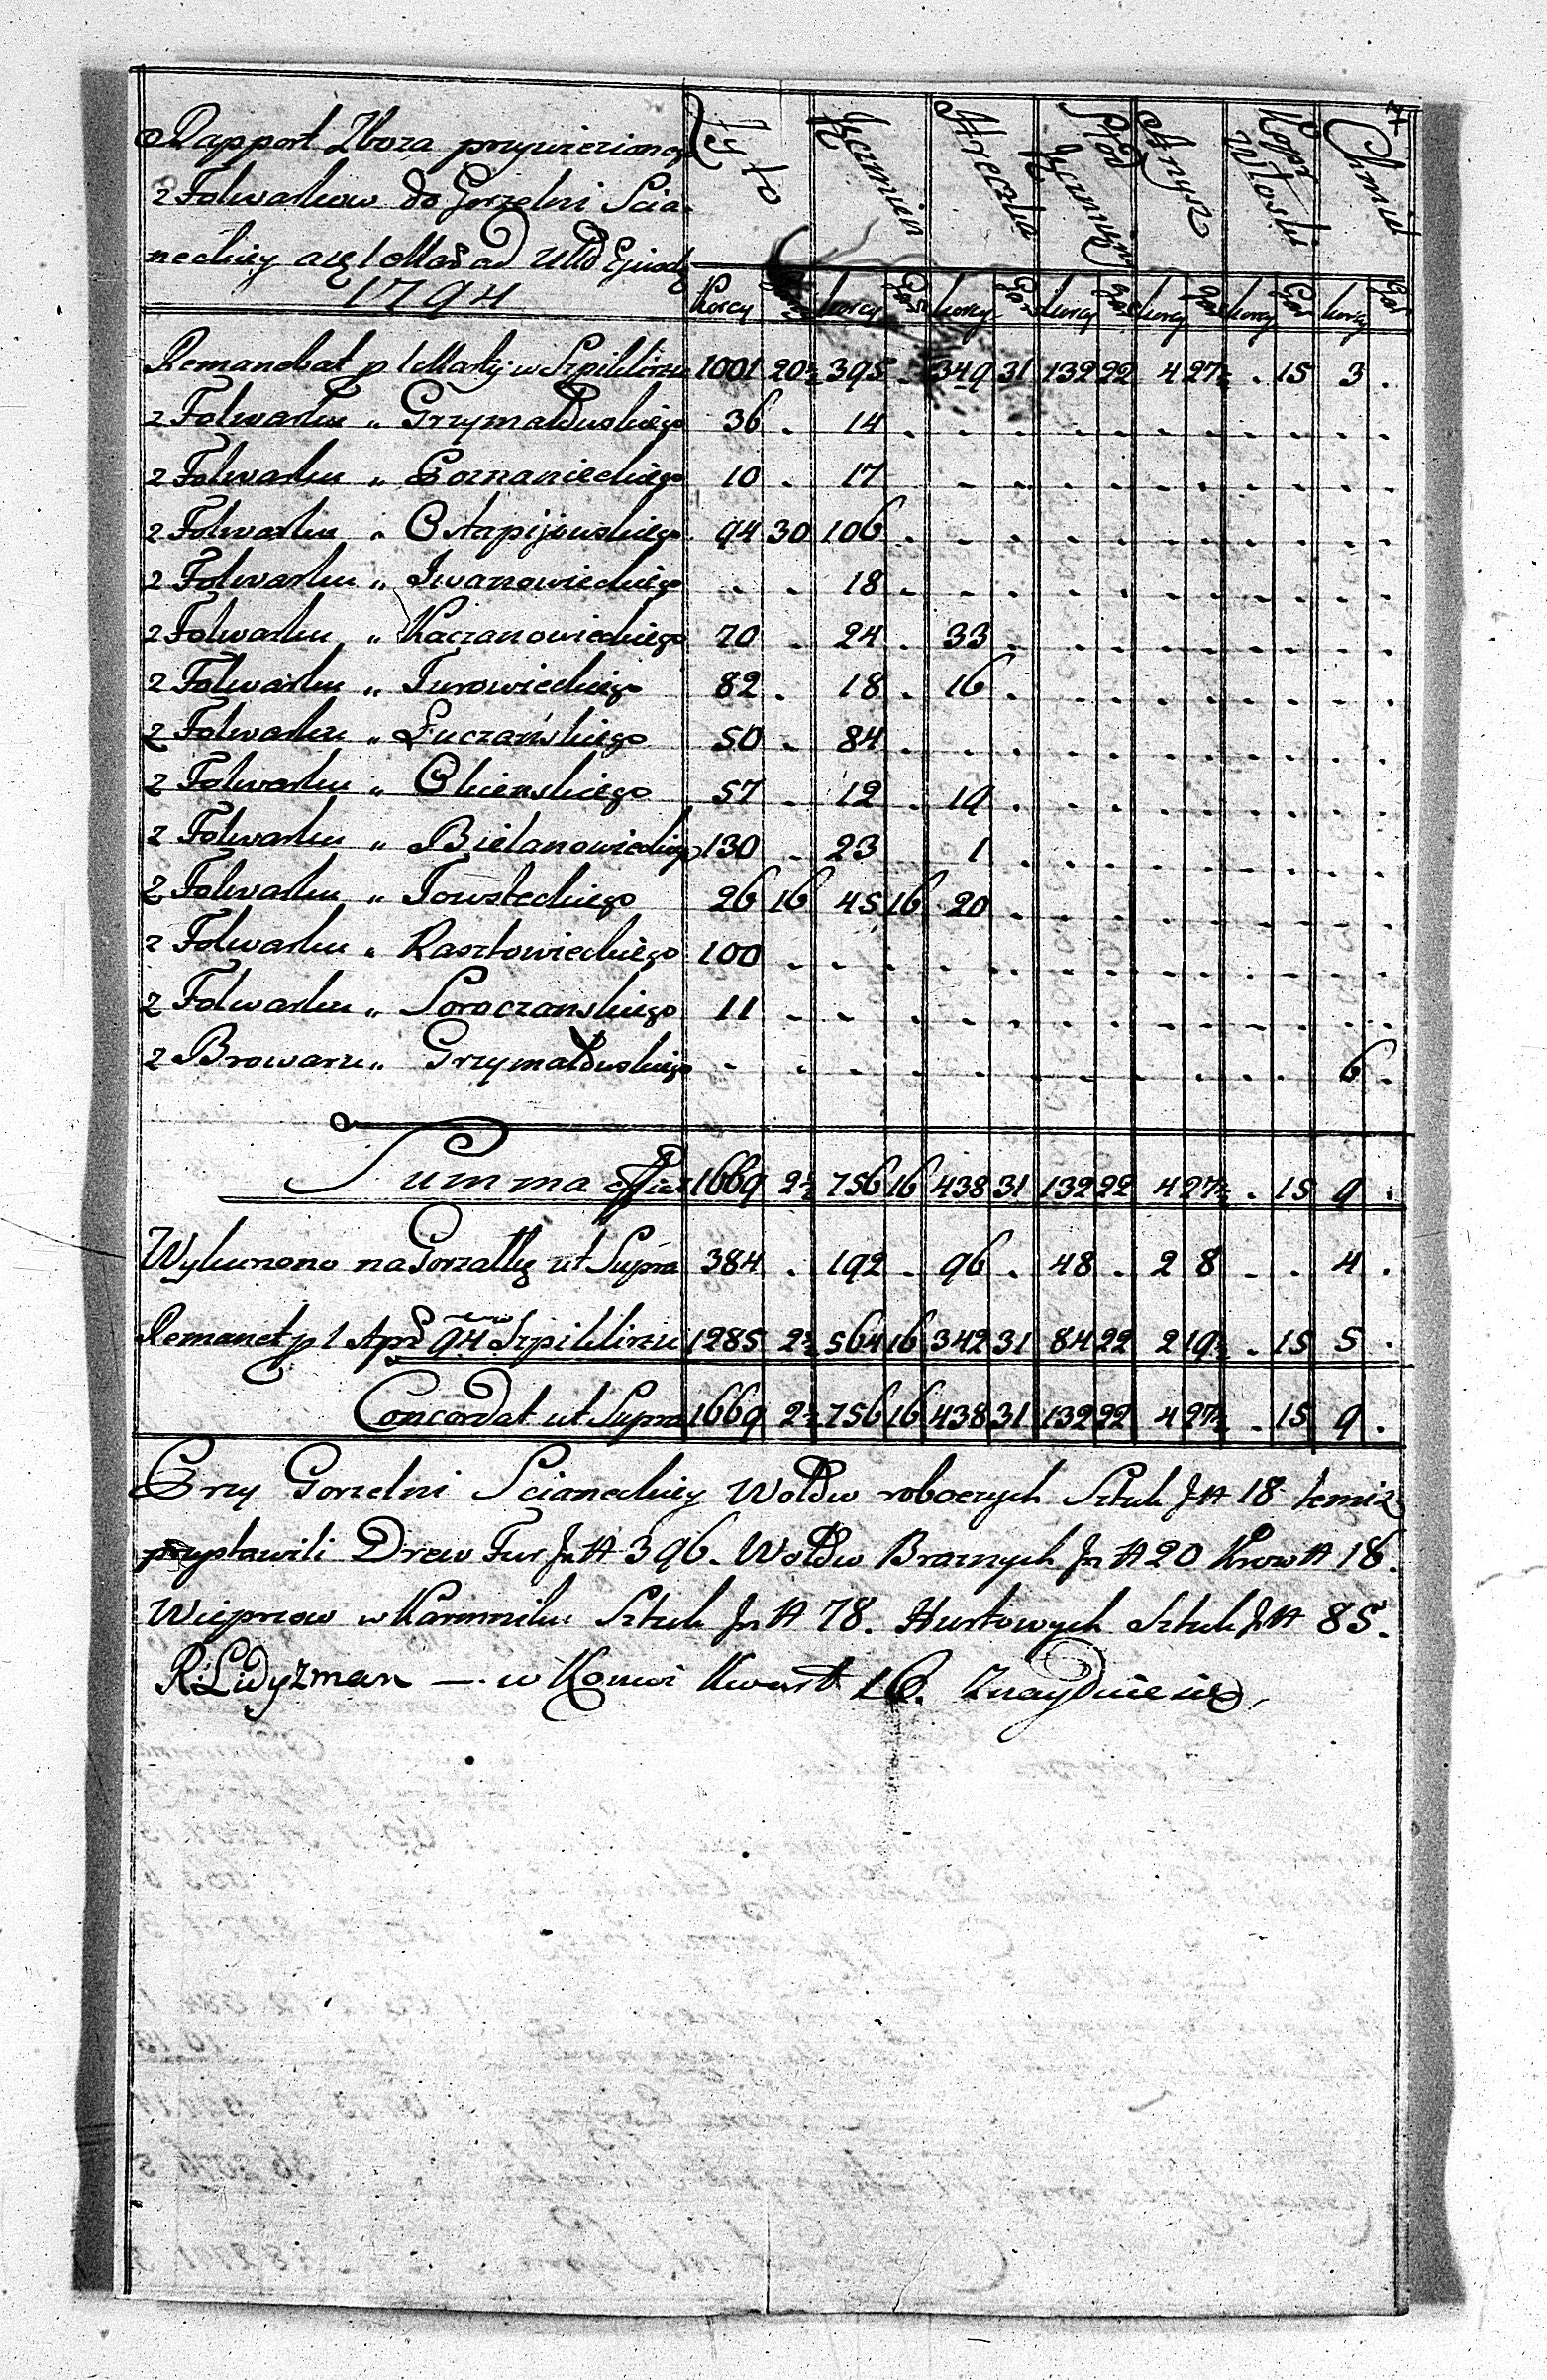 Rapport Zboża przywiezionego
z Folwarkow do Gorzelni Scia-
neckiey
1794
Żyto Ięczmień Hreczka Słod Ięczmięny Anysz Kopr Włoski Chmiel
Korcy Garcy korcy Gar korcy Gar korcy Gar korcy gar korcy Gar korcy Gar
Remanebat p 1 Marty w Szpiklirzu 1001 20½ 395 . 349 31 132 22 4 27½ . 15 3 .
z Folwarku " Grzymałowskiego 36 . 14 . . . . . . . . . . .
z Folwarku " Poznanieckiego 10 . 17 . . . . . . . . . . .
z Folwarku " Ostapijowskiego 94 30 106 . . . . . . . . . . .
z Folwarku " Iwanowieckiego . . 18 . . . . . . . . . . .
z Folwarku " Kaczanowieckiego 70 . 24 . 33 . . . . . . . . .
z Folwarku " Turowieckiego 82 . 18 . 16 . . . . . . . . .
z Folwarku " Łuczańskiego 50 . 84 . . . . . . . . . . .
z Folwarku " Okienskiego 57 . 12 . 19 . . . . . . . . .
z Folwarku " Bielanowieckiego 130 . 23 1 . . . . . . . . .
z Folwarku " Towsteckiego 26 16 45 16 20 . . . . . . . . .
z Folwarku " Rasztowieckiego 100 . . . . . . . . . . . . .
z Folwarku " Soroczanskiego 11 . . . . . . . . . . . . .
z Browaru " Grzymałowskiego . . . . . . . . . . . . 6 .
Summa 1669 2½ 756 16 438 31 132 22 4 27½ . 15 9 .
Wykurzono na Gorzałkę ut Supra 384 . 192 . 96 . 48 . 2 8 . . 4 .
Remanet p 1 Apr 94 Szpiklirzu 1285 2½ 564 16 342 31 84 22 2 19½ . 15 5 .
Concordat ut Supra 1669 2½ 756 16 438 31 132 22 4 27½ . 15 9 .
Przy Gorzelni Scianeckiey Wołów roboczych Sztuk 18 temiz
przystawili Drew Fur 396. Wołów Braznych 20 Krow 18.
Wieprzow w Karmniku Sztuk 78. Hurtowych Sztuk 85.
w Konwi Kwart 16. Znayduie się,